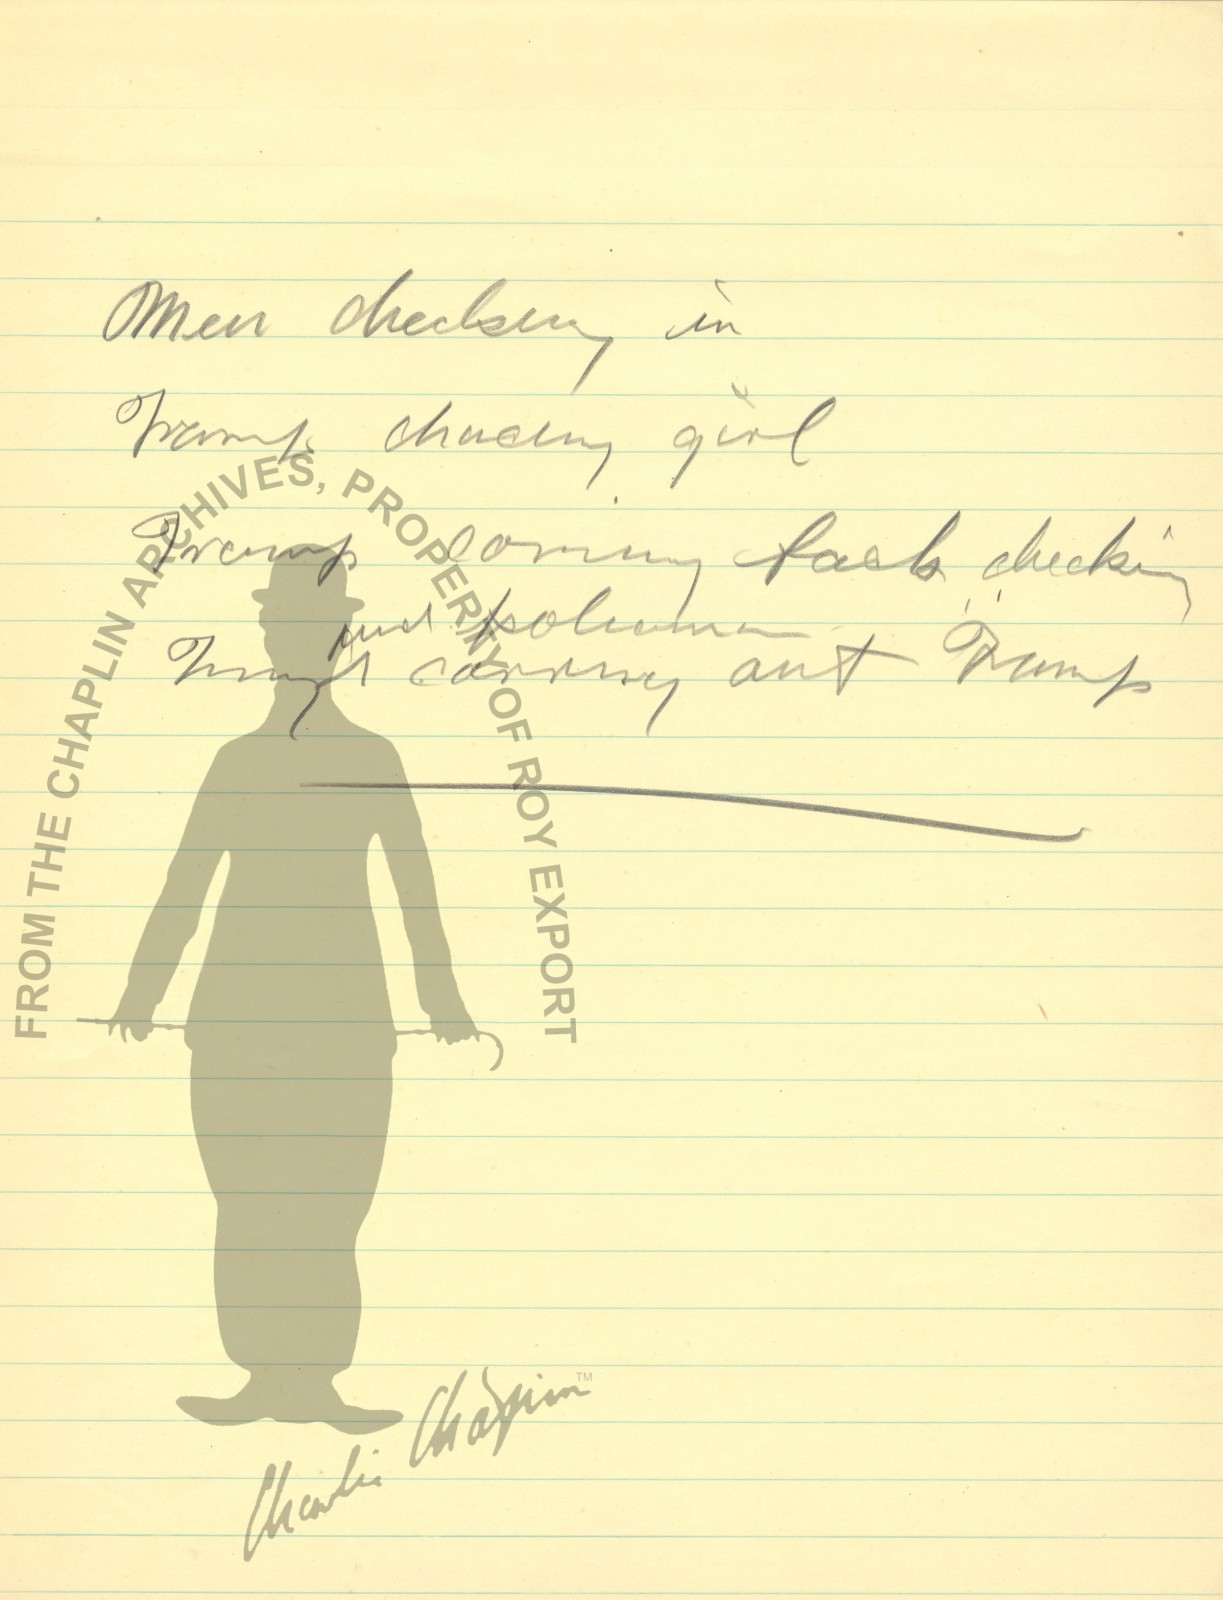 Men checking in
Tramp chasing girl
Tramp coming back checking
and policeman
carrying out Tramp
FROM THE CHAPLIN ARCHIVES, PROPERTY OF ROY EXPORT
Charlie Chaplin TM